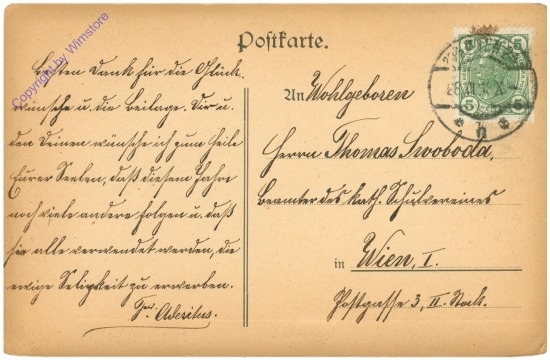 Postkarte.
Besten Dank für die Glück-
wünsche u. die Beilage. Dir u.
den Deinen wünsche ich zum Heile
Eurer Seelen, daß diesem Jahre
noch viele andere folgen u. daß
sie alle verwendet werden, die
ewige Seligkeit zu erwerben.
Aderitus.
An Wohlgeboren
Herrn Thomas Swoboda,
Beamter des kath. Schulvereines
in Wien, I.
Postgasse 3, II. Stock.
5 5
5 5
Copyright by Wimstore